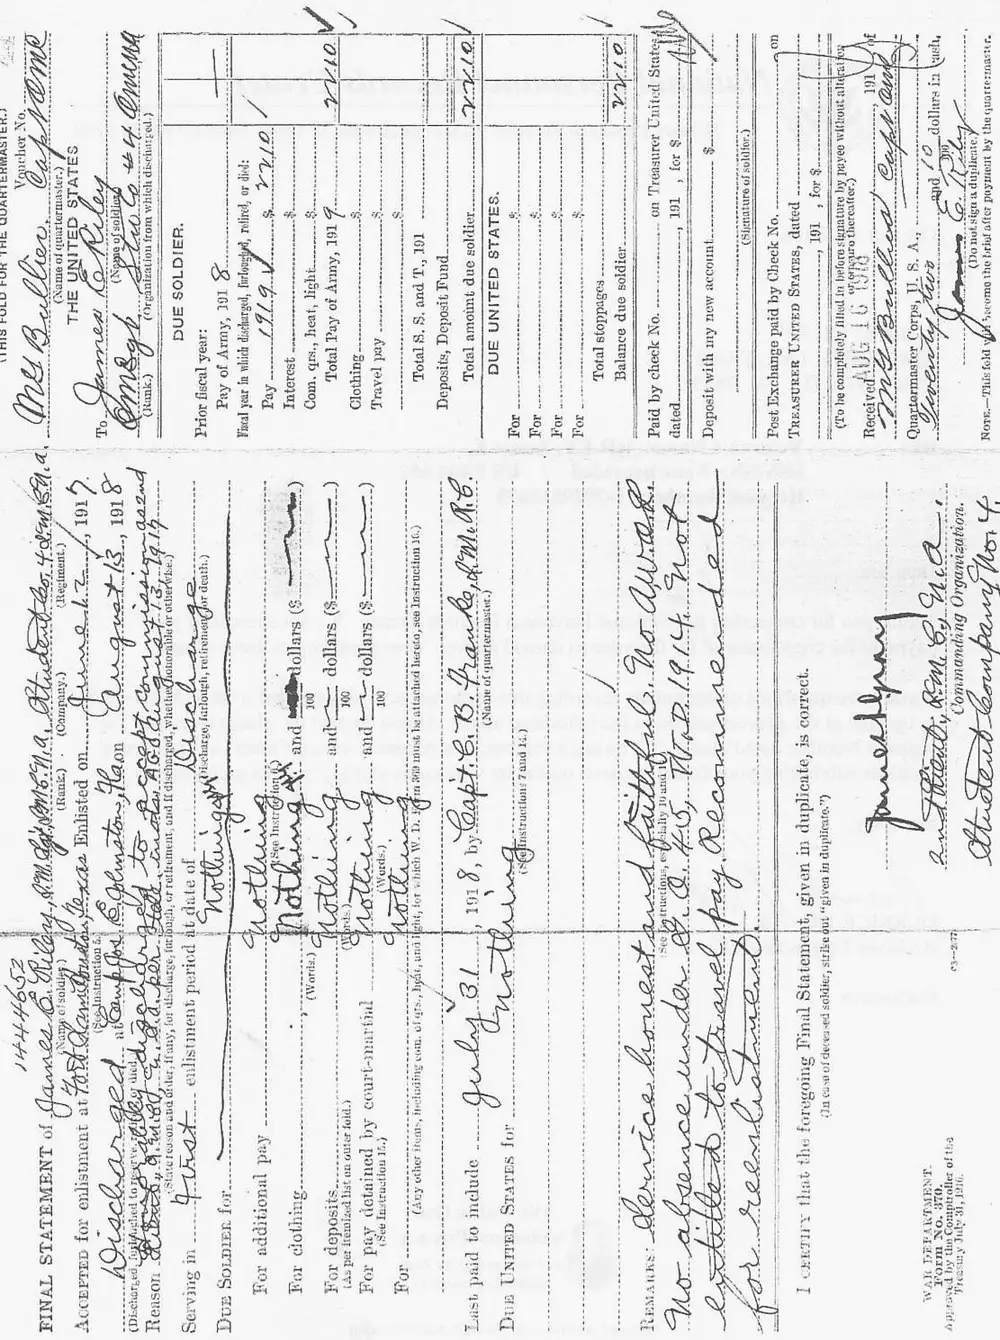 144652
FINAL STATEMENT of James E. Riley,
(Name of soldier.) (Rank.) (Company.) (Regiment.)
ACCEPTED for enlistment at Fort Sam Houston, Texas Enlisted on June 12, 1917
(See Instruction 5.)
Discharged at Camp Jos. E. Johnston, Fla on August 13, 1918
(Discharged, furloughed to reserve, retired, died.)
Reason Honorably discharged to accept commission as 2nd
(State reason and order, if any, for discharge, furlough, or retirement, and if discharged, whether honorable or otherwise.)
Serving in first enlistment period at date of Discharge
(Discharge, furlough, retirement, or death.)
DUE SOLDIER for Nothing
For additional pay Nothing
(See Instruction 6.)
For clothing Nothing and dollars ($ )
(Words.) 100
For deposits Nothing and dollars ($ )
(As per itemized list on outer fold.) (Words.) 100
For pay detained by court-martial Nothing and dollars ($ )
(See Instruction 15.) (Words.) 100
For Nothing
(Any other items, including com. of qrs., heat, and light, for which W. D. Form 369 must be attached hereto, see Instruction 16.)
Last paid to include July 31, 1918, by Capt. E. B. Franke, Q.M.R.C.
(Name of quartermaster.)
DUE UNITED STATES for Nothing
(See Instructions 7 and 15.)
REMARKS: Service honest and faithful. No AWOL
(See Instructions, especially 10 and 11.)
No absence under G.O. 45, W.D. 1914. Not
entitled to travel pay. Recommended
for reenlistment.
I CERTIFY that the foregoing Final Statement, given in duplicate, is correct.
(In case of deceased soldier, strike out "given in duplicate.")
2nd Lieut, Q.M.C., N.A.
Commanding Organization.
Student Company No. 4
WAR DEPARTMENT.
Form No. 370.
Approved by the Comptroller of the
Treasury July 31, 1916.
c3—237
(THIS FOLD FOR THE QUARTERMASTER.)
Voucher No.
M S Bullier, Cap QMC
(Name of quartermaster.)
THE UNITED STATES
To James E Riley
(Name of soldier.)
QMSgt Stu Co #4 QMCNA
(Rank.) (Organization from which discharged.)
DUE SOLDIER.
Prior fiscal year:
Pay of Army, 1918
Fiscal year in which discharged, furloughed, retired, or died:
Pay 1919 $ 22 10
Interest $
Com. qrs., heat, light $
Total Pay of Army, 1919 22 10
Clothing $
Travel pay $
Total S. S. and T., 191
Deposits, Deposit Fund
Total amount due soldier 22 10
DUE UNITED STATES.
For $
For $
For $
For $
Total stoppages
Balance due soldier 22 10
Paid by check No. on Treasurer United States,
dated , 191 , for $
Deposit with my new account $
(Signature of soldier.)
Post Exchange paid by Check No. on
TREASURER UNITED STATES, dated
, 191 , for $
(To be completely filled in before signature by payee without alteration or erasure thereafter.)
AUG 16 1918
Received , 191 of
M S Bullier Cap QMC
Quartermaster Corps, U. S. A.,
Twenty two and 10/100 dollars in cash.
James E. Riley
(Do not sign a duplicate.)
NOTE.—This fold will become the brief after payment by the quartermaster.